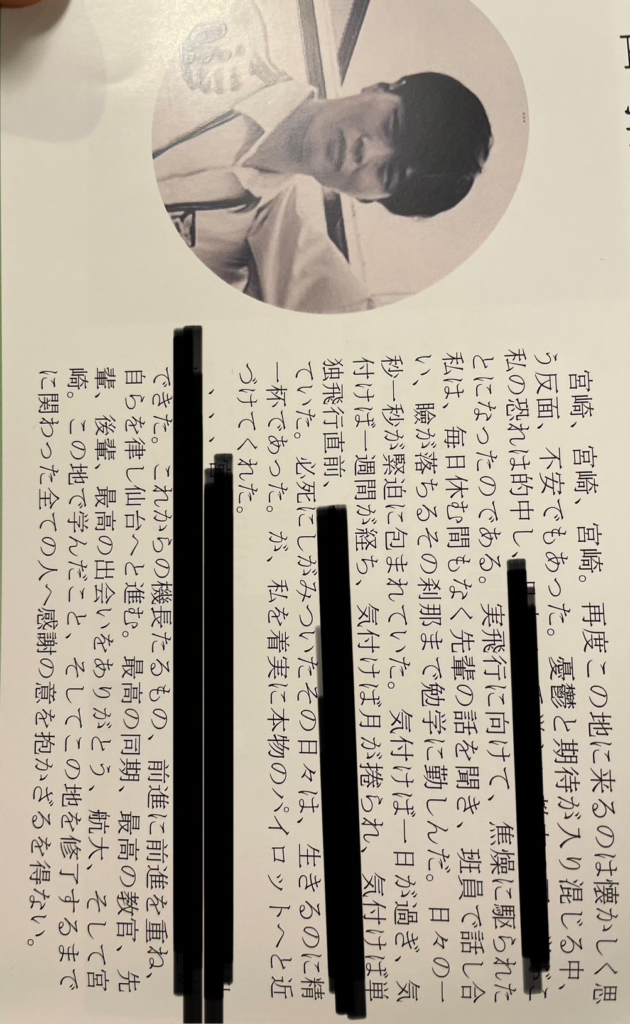 宮崎、宮崎、宮崎。再度この地に来るのは懐かしく思
う反面、不安でもあった。憂鬱と期待が入り混じる中、
私の恐れは的中し、
とになったのである。実飛行に向けて、焦燥に駆られた
私は、毎日休む間もなく先輩の話を聞き、班員で話し合
い、瞼が落ちるその刹那まで勉学に勤しんだ。日々の一
秒一秒が緊迫に包まれていた。気付けば一日が過ぎ、気
付けば一週間が経ち、気付けば月が捲られ、気付けば単
独飛行直前、
ていた。必死にしがみついたその日々は、生きるのに精
一杯であった。が、私を着実に本物のパイロットへと近
づけてくれた。
、、、
できた。これからの機長たるもの、前進に前進を重ね、
自らを律し仙台へと進む。最高の同期、最高の教官、先
輩、後輩、最高の出会いをありがとう、航大、そして宮
崎。この地で学んだこと、そしてこの地を修了するまで
に関わった全ての人へ感謝の意を抱かざるを得ない。